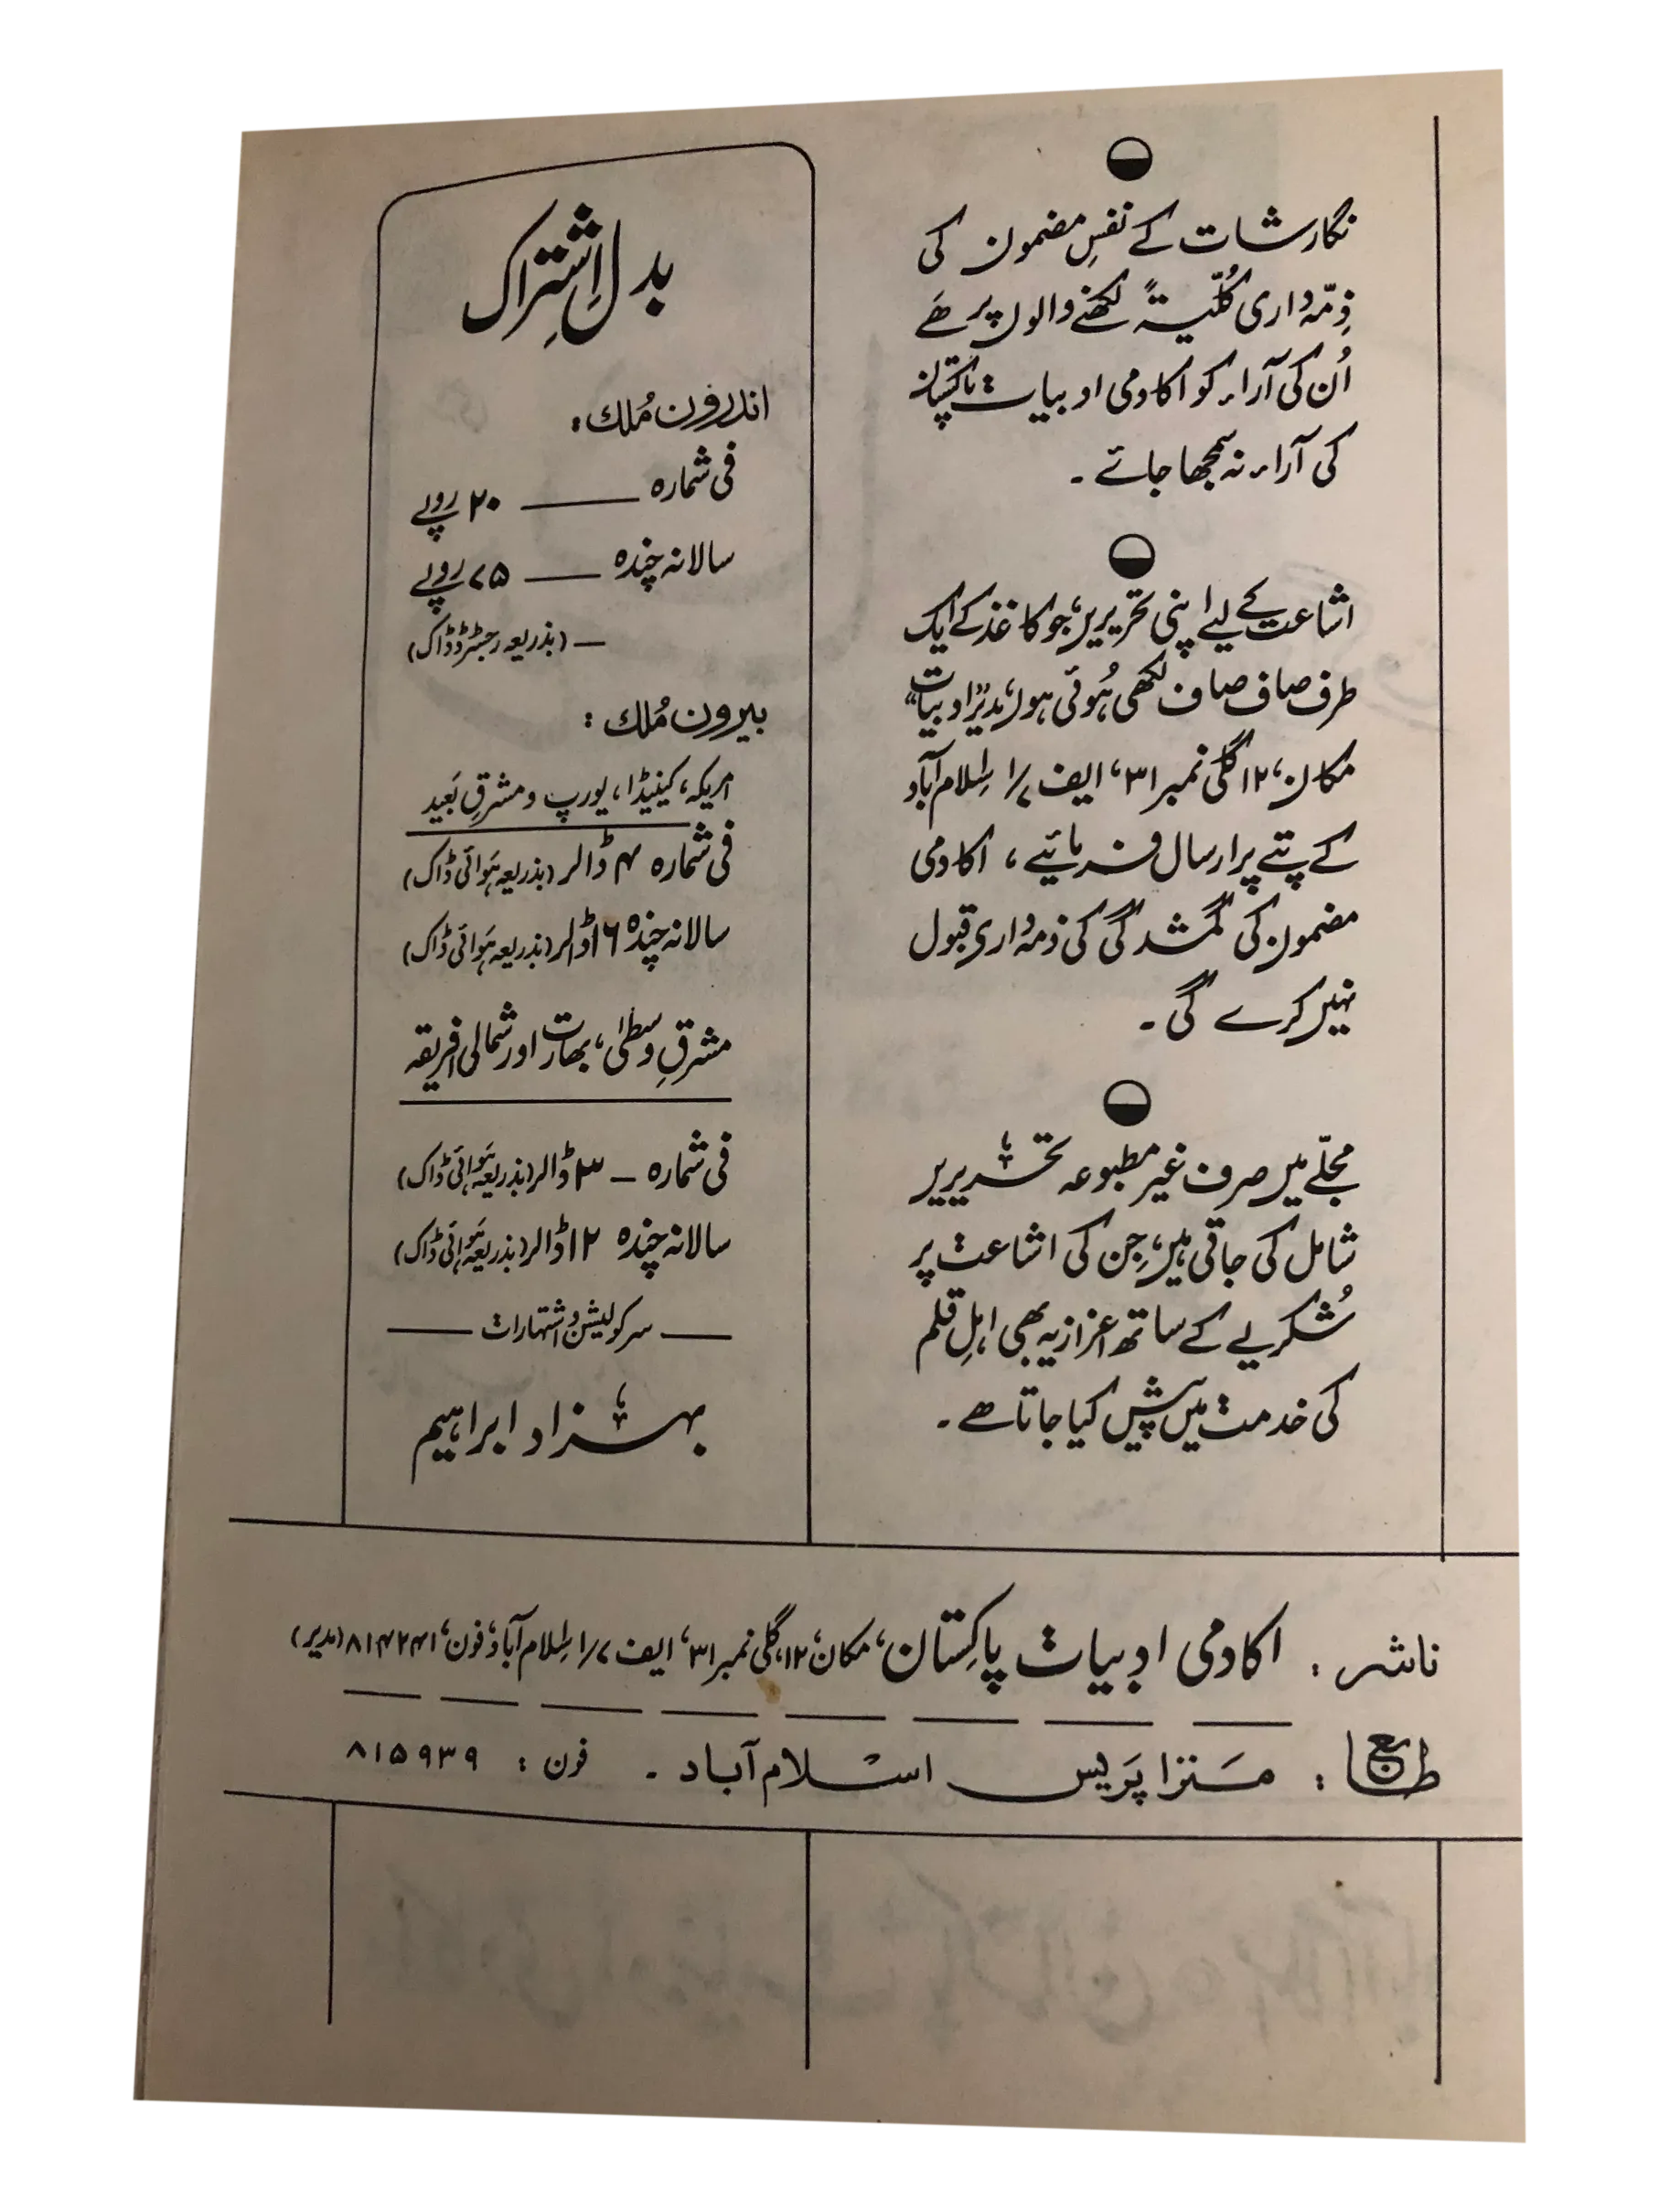 نگارشات کے نفسِ مضمون کی
ذِمّہ داری کُلّیتہً لکھنے والوں پر ھَے
اُن کی آراء کو اکادمی ادبیات پاکستان
کی آراء نہ سمجھا جائے ۔
اشاعت کے لیے اپنی تحریریں، جو کاغذ کے ایک
طرف صاف صاف لکھی ہُوئی ہوں، مدیر "ادبیات"
مکان ۱۲، گلی نمبر ۳۱، ایف ۷/۱ اِسلام آباد
کے پتے پر ارسال فرمائیے ، اکادمی
مضمون کی گمشدگی کی ذمہ داری قبول
نہیں کرے گی ۔
مجلّے میں صرف غیر مطبوعہ تحریریں
شامل کی جاتی ہیں، جِن کی اشاعت پر
شُکریے کے ساتھ اعزازیہ بھی اہلِ قلم
کی خدمت میں پیش کیا جاتا ھے ۔
بدل اِشتِراک
اندرونِ مُلک :
فی شمارہ ۲۰ روپے
سالانہ چندہ ۷۵ روپے
(بذریعہ رجسٹرڈ ڈاک)
بیرون مُلک :
امریکہ، کینیڈا، یورپ و مشرقِ بَعید
فی شمارہ ۴ ڈالر (بذریعہ ہَوائی ڈاک)
سالانہ چندہ ۱۶ ڈالر (بذریعہ ہَوائی ڈاک)
مشرقِ وسطیٰ، بھارت اور شمالی افریقہ
فی شمارہ – ۳ ڈالر (بذریعہ ہَوائی ڈاک)
سالانہ چندہ ۱۲ ڈالر (بذریعہ ہَوائی ڈاک)
سرکولیشن و اشتہارات
بہزاد ابراہیم
ناشر : اکادمی ادبیات پاکِستان، مکان ۱۲، گلی نمبر ۳۱، ایف ۷/۱ اِسلام آباد، فون ۸۱۴۲۴۱ (مدیر)
طابع : مَنزا پَریس اسلام آباد ۔ فون : ۸۱۵۹۳۹